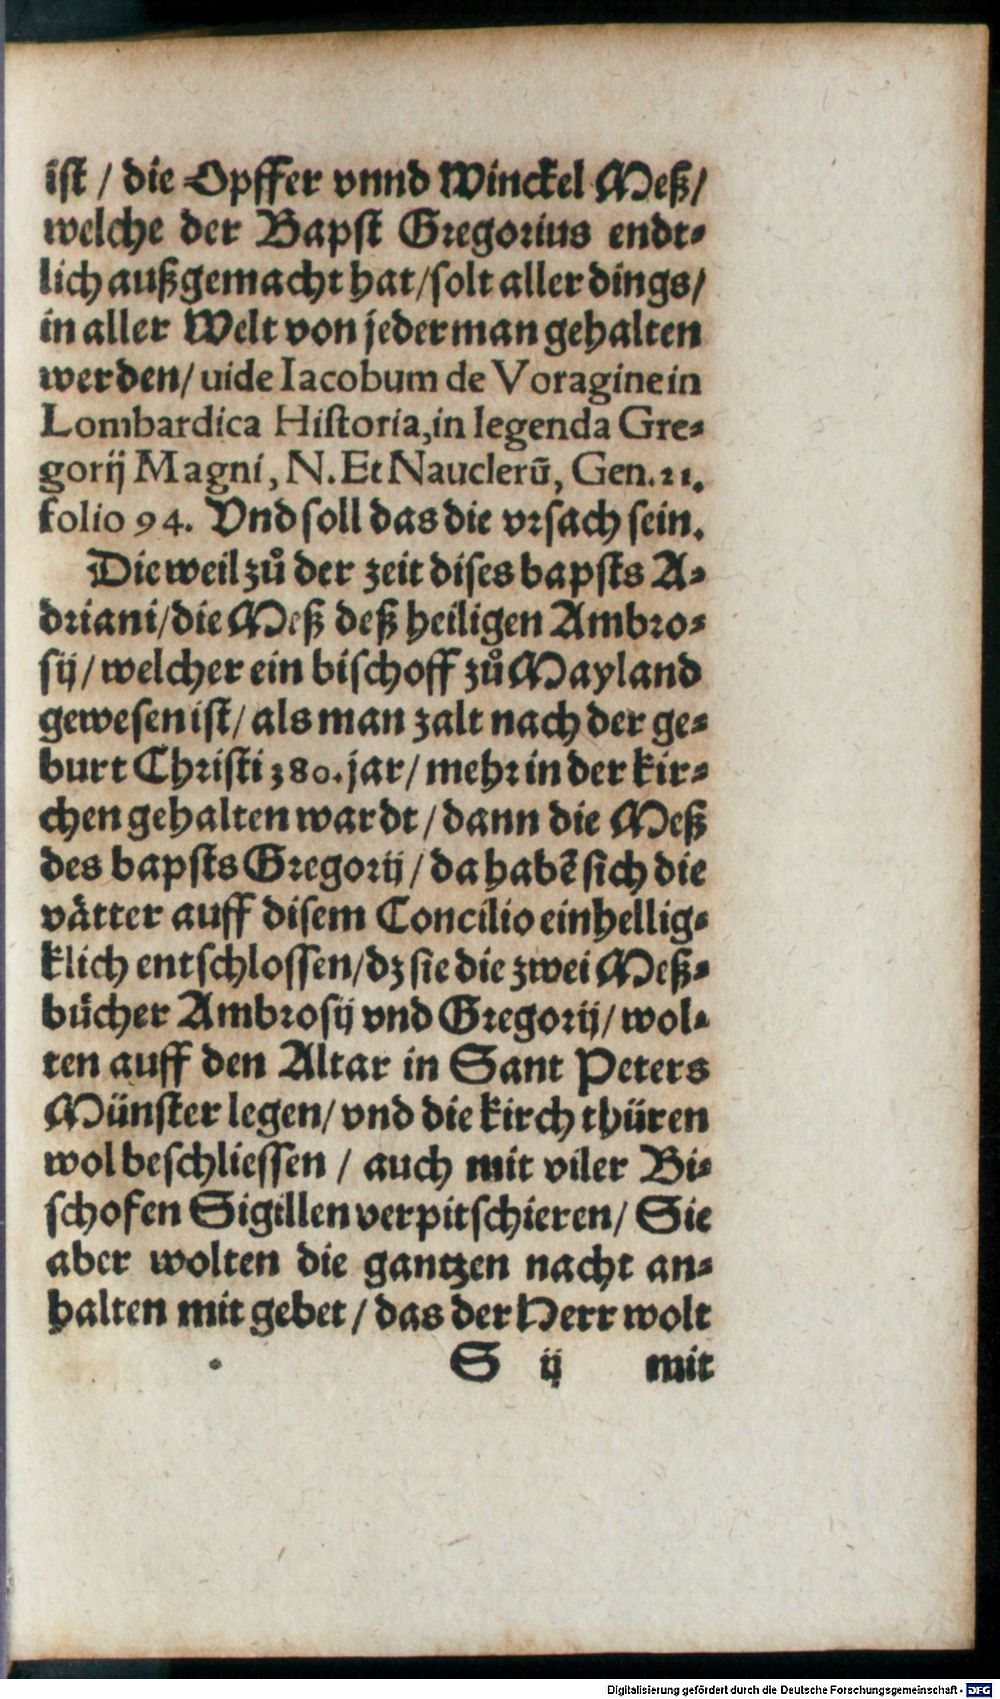 ist / die Opffer vnnd Winckel Meß /
welche der Bapst Gregorius endt⸗
lich außgemacht hat / solt aller dings /
in aller Welt von jederman gehalten
werden / uide Iacobum de Voragine in
Lombardica Historia, in legenda Gre⸗
gorij Magni, N. Et Nauclerū, Gen. 21.
folio 94. Vnd soll das die vrsach sein.
Die weil zů der zeit dises bapsts A⸗
driani / die Meß deß heiligen Ambro⸗
sij / welcher ein bischoff zů Mayland
gewesen ist / als man zalt nach der ge⸗
burt Christi 380. jar / mehr in der kir⸗
chen gehalten wardt / dann die Meß
des bapsts Gregorij / da habē sich die
vätter auff disem Concilio einhellig⸗
klich entschlossen / dz sie die zwei Meß⸗
bücher Ambrosij vnd Gregorij / wol⸗
ten auff den Altar in Sant Peters
Münster legen / vnd die kirch thüren
wol beschliessen / auch mit viler Bi⸗
schofen Sigillen verpitschieren / Sie
aber wolten die gantzen nacht an⸗
halten mit gebet / das der Herr wolt
S ij mit
Digitalisierung gefördert durch die Deutsche Forschungsgemeinschaft - DFG